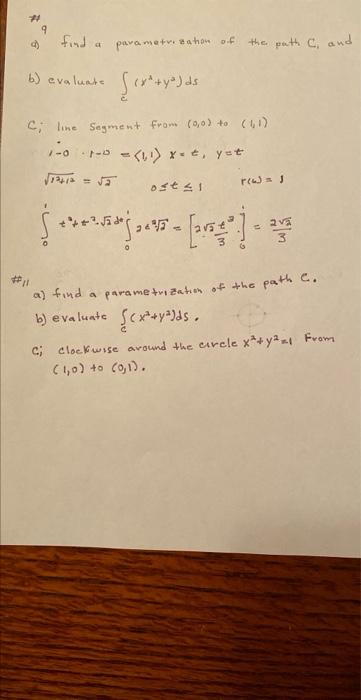 #9
a) find a parametrization of the path C, and
b) evaluate ∫_C (x²+y²) ds
C; line Segment from (0,0) to (1,1)
1-0 · 1-0 = ⟨1,1⟩ x=t, y=t
√1²+1² = √2 0≤t≤1
∫₀¹ t²+t²·√2 dt ∫₀¹ 2t²√2 = [2√2 t³/3]₀¹ = 2√2/3
#11
a) find a parametrization of the path C.
b) evaluate ∫_C (x²+y²)ds.
C; clockwise around the circle x²+y²=1 From
(1,0) to (0,1).